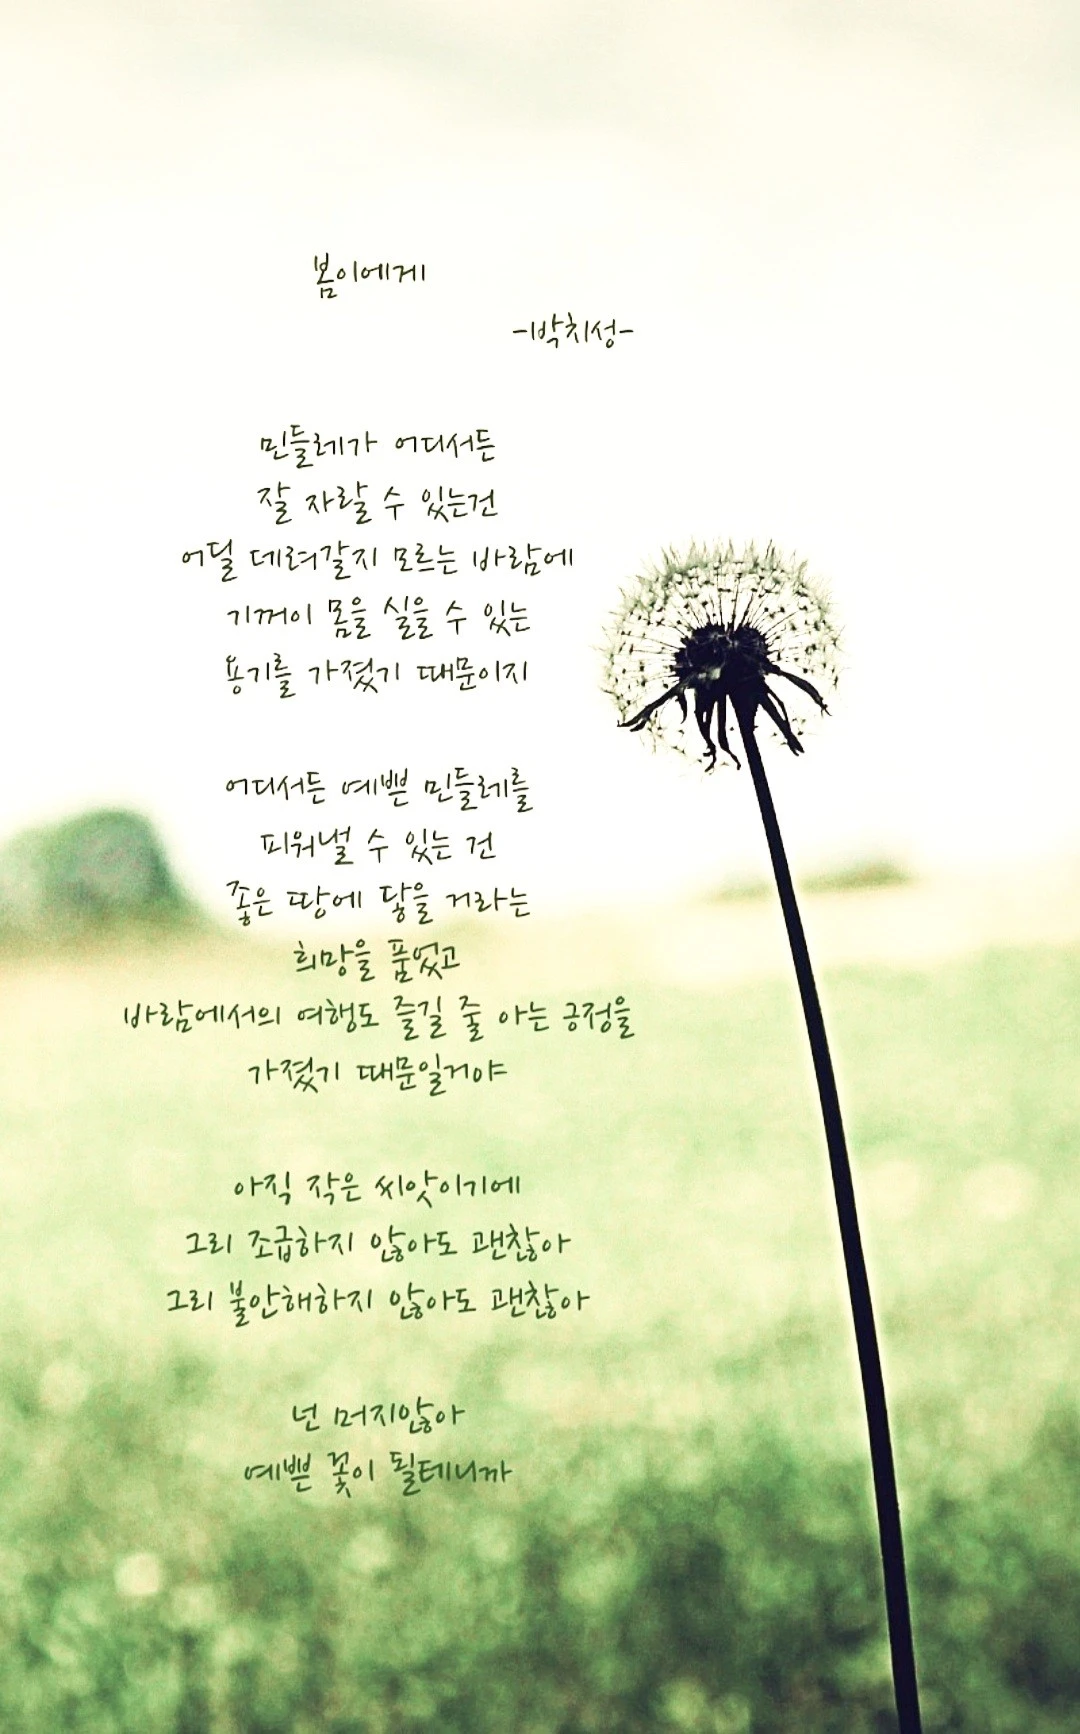 봄이에게
-박치성-
민들레가 어디서든
잘 자랄 수 있는건
어딜 데려갈지 모르는 바람에
기꺼이 몸을 실을 수 있는
용기를 가졌기 때문이지
어디서든 예쁜 민들레를
피워낼 수 있는 건
좋은 땅에 닿을 거라는
희망을 품었고
바람에서의 여행도 즐길 줄 아는 긍정을
가졌기 때문일거야
아직 작은 씨앗이기에
그리 조급하지 않아도 괜찮아
그리 불안해하지 않아도 괜찮아
넌 머지않아
예쁜 꽃이 될테니까